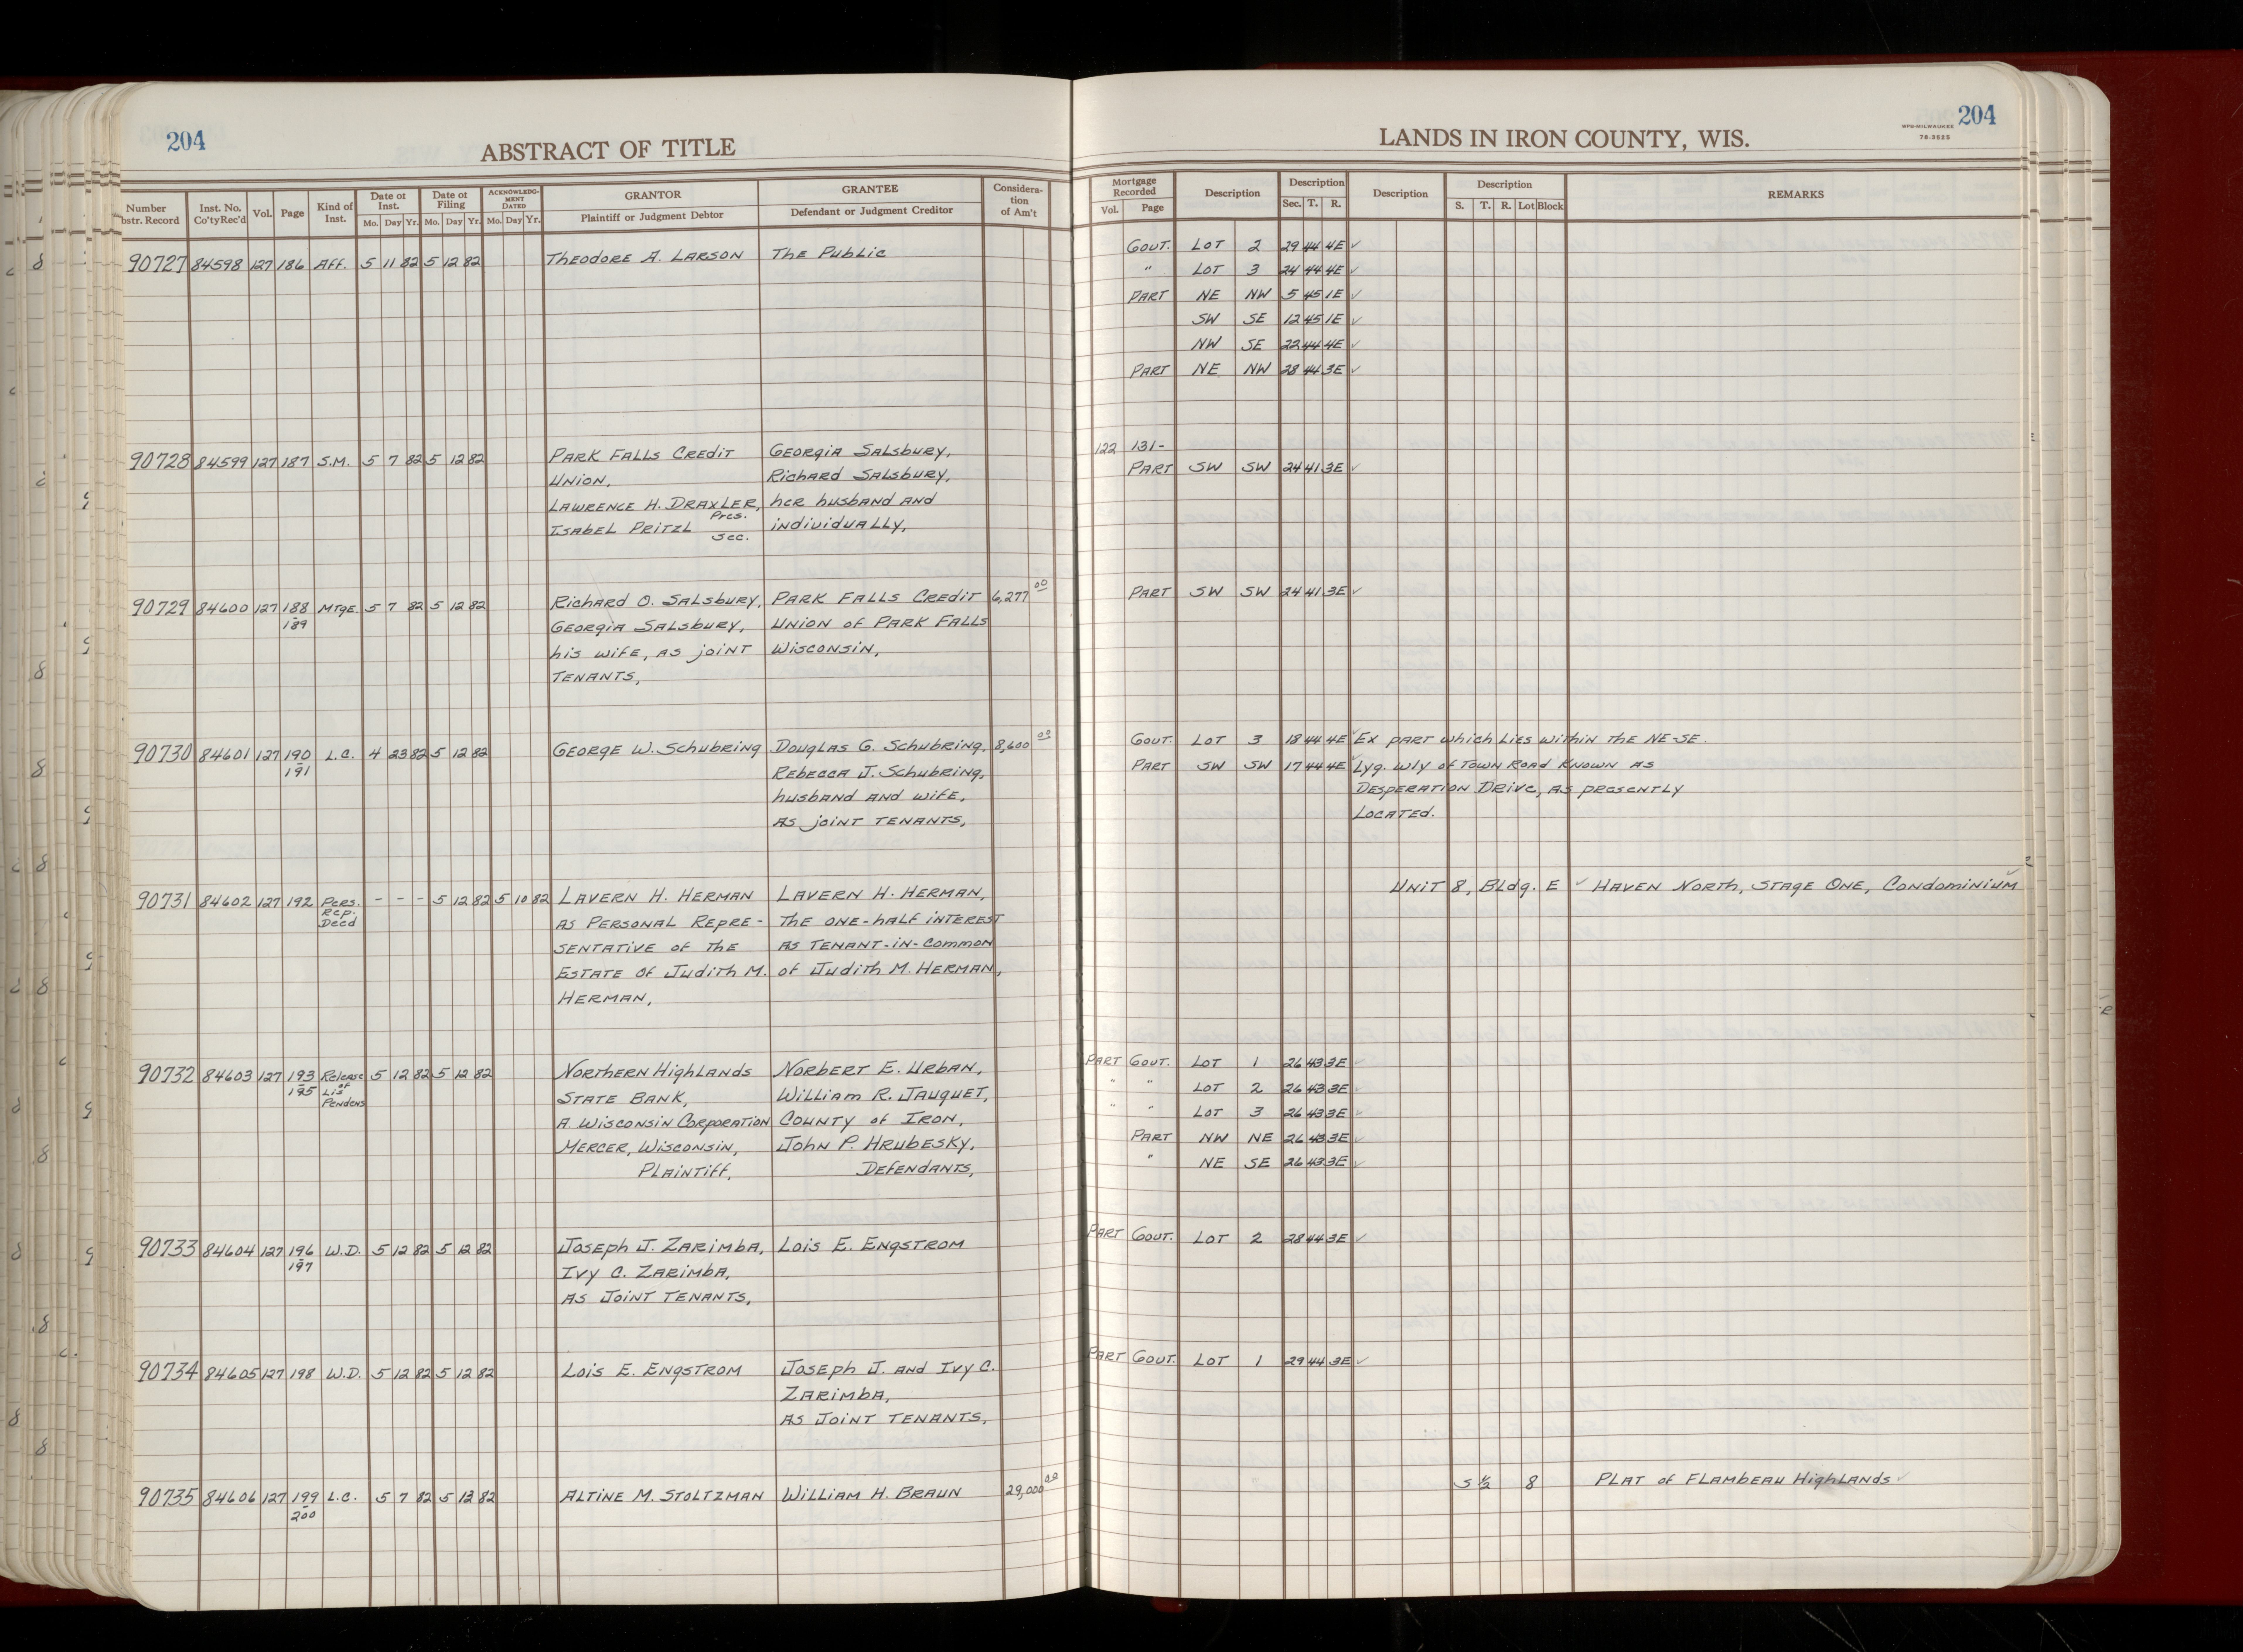 204
ABSTRACT OF TITLE
Number
bstr. Record
Inst. No.
Co'ty Rec'd
Vol.
Page
Kind of
Inst.
Date of
Inst.
Mo. Day Yr.
Date of
Filing
Mo. Day Yr.
ACKNOWLEDG-
MENT
DATED
Mo. Day Yr.
GRANTOR
Plaintiff or Judgment Debtor
GRANTEE
Defendant or Judgment Creditor
Considera-
tion
of Am't
90727 84598 127 186 Aff. 5 11 82 5 12 82 Theodore A. Larson The Public
90728 84599 127 187 S.M. 5 7 82 5 12 82 Park Falls Credit Georgia Salsbury,
Union, Richard Salsbury,
Lawrence H. Draxler, her husband and
Pres.
Isabel Pritzl individually,
Sec.
90729 84600 127 188 Mtge. 5 7 82 5 12 82 Richard O. Salsbury, Park Falls Credit 6,277 00
-189 Georgia Salsbury, Union of Park Falls
his wife, as joint Wisconsin,
tenants,
90730 84601 127 190 L.C. 4 23 82 5 12 82 George W. Schubring Douglas G. Schubring, 8,600 00
-191 Rebecca J. Schubring,
husband and wife,
as joint tenants,
90731 84602 127 192 Pers. - - - 5 12 82 5 10 82 Lavern H. Herman Lavern H. Herman,
Rep. as Personal Repre- the one-half interest
Deed sentative of the as tenant-in-common
Estate of Judith M. of Judith M. Herman,
Herman,
90732 84603 127 193 Release 5 12 82 5 12 82 Northern Highlands Norbert E. Urban,
-195 of Lis State Bank, William R. Jauquet,
Pendens A Wisconsin Corporation County of Iron,
Mercer, Wisconsin, John P. Hrubesky,
Plaintiff, Defendants,
90733 84604 127 196 W.D. 5 12 82 5 12 82 Joseph J. Zarimba, Lois E. Engstrom
-197 Ivy C. Zarimba,
as Joint Tenants,
90734 84605 127 198 W.D. 5 12 82 5 12 82 Lois E. Engstrom Joseph J. and Ivy C.
Zarimba,
as Joint Tenants,
90735 84606 127 199 L.C. 5 7 82 5 13 82 Altine M. Stoltzman William H. Braun 29,000 00
-200
204
LANDS IN IRON COUNTY, WIS.
MILWAUKEE
Mortgage
Recorded
Vol. Page
Description
Description
Sec. T. R.
Description
Description
S. T. R. Lot Block
REMARKS
Govt. Lot 2 29 44 4E ✓
" Lot 3 24 44 4E ✓
Part NE NW 5 45 1E ✓
SW SE 12 45 1E ✓
NW SE 22 44 4E ✓
Part NE NW 28 44 3E ✓
122 131-
Part SW SW 24 41 3E ✓
Part SW SW 24 41 3E ✓
Govt. Lot 3 18 44 4E ✓ Ex part which lies within the NE-SE.
Part SW SW 17 44 4E ✓ Lyg. wly of Town Road known as
Desperation Drive, as presently
located.
Unit 8, Bldg. E ✓ Haven North, Stage One, Condominium ✓
Part Govt. Lot 1 26 43 3E ✓
" " Lot 2 26 43 3E ✓
" " Lot 3 26 43 3E ✓
Part NW NE 26 43 3E ✓
" NE SE 26 43 3E ✓
Part Govt. Lot 2 28 44 3E ✓
Part Govt. Lot 1 29 44 3E ✓
S ½ 8 Plat of Flambeau Highlands ✓